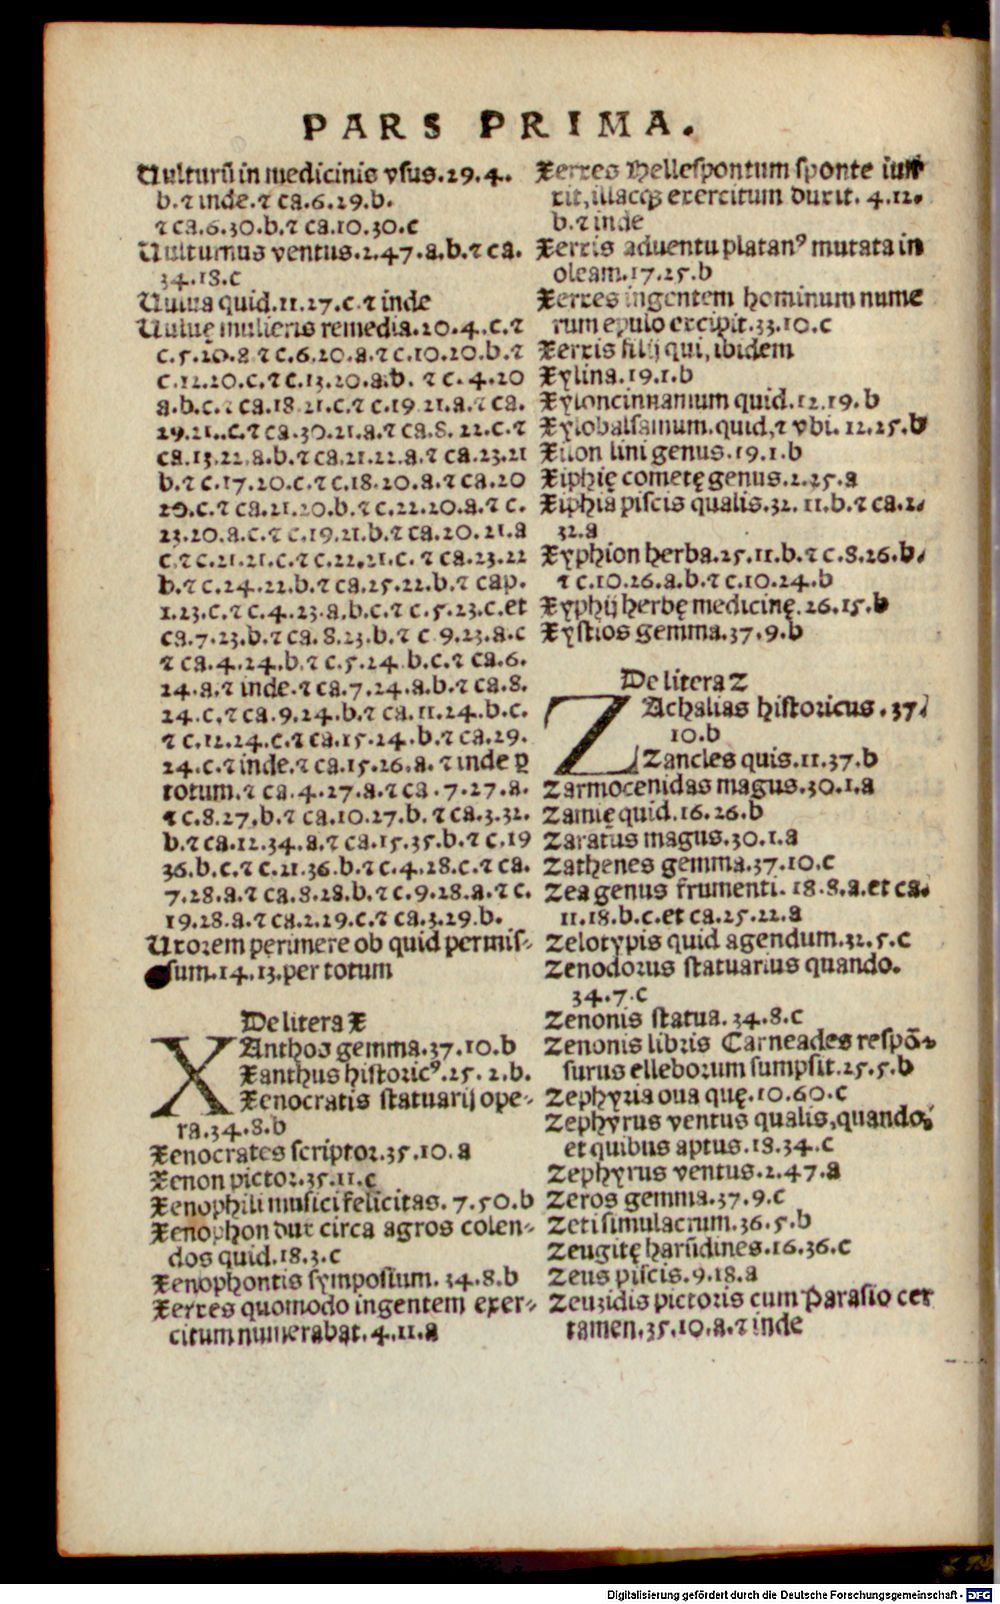 PARS PRIMA.
Vulturũ in medicinis vsus.29.4.
b.⁊ inde.⁊ ca.6.29.b.
⁊ ca.6.30.b.⁊ ca.10.30.c
Vulturnus ventus.2.47.a.b.⁊ ca.
34.18.c
Vuula quid.11.27.c.⁊ inde
Vuluę mulieris remedia.20.4.c.⁊
c.5.20.a ⁊ c.6.20.a.⁊ c.10.20.b.⁊
c.12.20.c.⁊ c.13.20.a.b. ⁊ c.4.20
a.b.c.⁊ ca.18.21.c.⁊ c.19.21.a.⁊ ca.
29.21.c.⁊ ca.30.21.a.⁊ ca.8.22.c.⁊
ca.13.22.a.b.⁊ ca.21.22.a.⁊ ca.23.21
b.⁊ c.17.20.c.⁊ c.18.20.a.⁊ ca.20
20.c.⁊ ca.21.20.b.⁊ c.22.20.a.⁊ c.
23.20.a.c.⁊ c.19.21.b.⁊ ca.20.21.a
c.⁊ c.21.21.c.⁊ c.22.21.c.⁊ ca.23.22
b.⁊ c.24.22.b.⁊ ca.25.22.b.⁊ cap.
1.23.c.⁊ c.4.23.a.b.c.⁊ c.5.23.c.et
ca.7.23.b.⁊ ca.8.23.b.⁊ c 9.23.a.c
⁊ ca.4.24.b.⁊ c.5.24.b.c.⁊ ca.6.
24.a.⁊ inde.⁊ ca.7.24.a.b.⁊ ca.8.
24.c.⁊ ca.9.24.b.⁊ ca.11.24.b.c.
⁊ c.12.24.c.⁊ ca.15.24.b.⁊ ca.29.
24.c.⁊ inde.⁊ ca.15.26.a.⁊ inde ꝑ
totum.⁊ ca.4.27.a.⁊ ca.7.27.a.
⁊ c.8.27.b.⁊ ca.10.27.b.⁊ ca.3.32.
b.⁊ ca.12.34.a.⁊ ca.15.35.b.⁊ c.19
36.b.c.⁊ c.21.36.b.⁊ c.4.28.c.⁊ ca.
7.28.a.⁊ ca.8.28.b.⁊ c.9.28.a.⁊ c.
19.28.a.⁊ ca.2.29.c.⁊ ca.3.29.b.
Vxorem perimere ob quid permis-
sum.14.13.per totum
De litera X
XAnthos gemma.37.10.b
Xanthus historicꝰ.25.2.b.
Xenocratis statuarij ope-
ra.34.8.b
Xenocrates scriptor.35.10.a
Xenon pictor.35.11.c
Xenophili musici felicitas.7.50.b
Xenophon dux circa agros colen-
dos quid.18.3.c
Xenophontis symposium.34.8.b
Xerxes quomodo ingentem exer-
citum numerabat.4.11.a
Xerxes Hellespontum sponte iun
xit, illacqꝫ exercitum duxit.4.12.
b.⁊ inde
Xerxis aduentu platanꝰ mutata in
oleam.17.25.b
Xerxes ingentem hominum nume
rum epulo excipit.33.10.c
Xerxis filij qui, ibidem
Xylina.19.1.b
Xyloncinnamum quid.12.19.b
Xylobalsamum.quid,⁊ vbi.12.25.b
Xilon lini genus.19.1.b
Xiphię cometę genus.2.25.a
Xiphia piscis qualis.32.11.b.⁊ ca.2.
32.a
Xyphion herba.25.11.b.⁊ c.8.26.b.
⁊ c.10.26.a.b.⁊ c.10.24.b
Xyphij herbę medicinę.26.15.b
Xystios gemma.37.9.b
De litera Z
ZAchalias historicus.37.
10.b
Zancles quis.11.37.b
Zarmocenidas magus.30.1.a
Zamię quid.16.26.b
Zaratus magus.30.1.a
Zathenes gemma.37.10.c
Zea genus frumenti.18.8.a.et ca.
11.18.b.c.et ca.25.22.a
Zelotypis quid agendum.32.5.c
Zenodorus statuarius quando.
34.7.c
Zenonis statua.34.8.c
Zenonis libris Carneades respõ-
surus elleborum sumpsit.25.5.b
Zephyria oua quę.10.60.c
Zephyrus ventus qualis,quando,
et quibus aptus.18.34.c
Zephyrus ventus.2.47.a
Zeros gemma.37.9.c
Zeti simulacrum.36.5.b
Zeugitę harũdines.16.36.c
Zeus piscis.9.18.a
Zeuzidis pictoris cum Parasio cer
tamen.35.10.a.⁊ inde
Digitalisierung gefördert durch die Deutsche Forschungsgemeinschaft - DFG